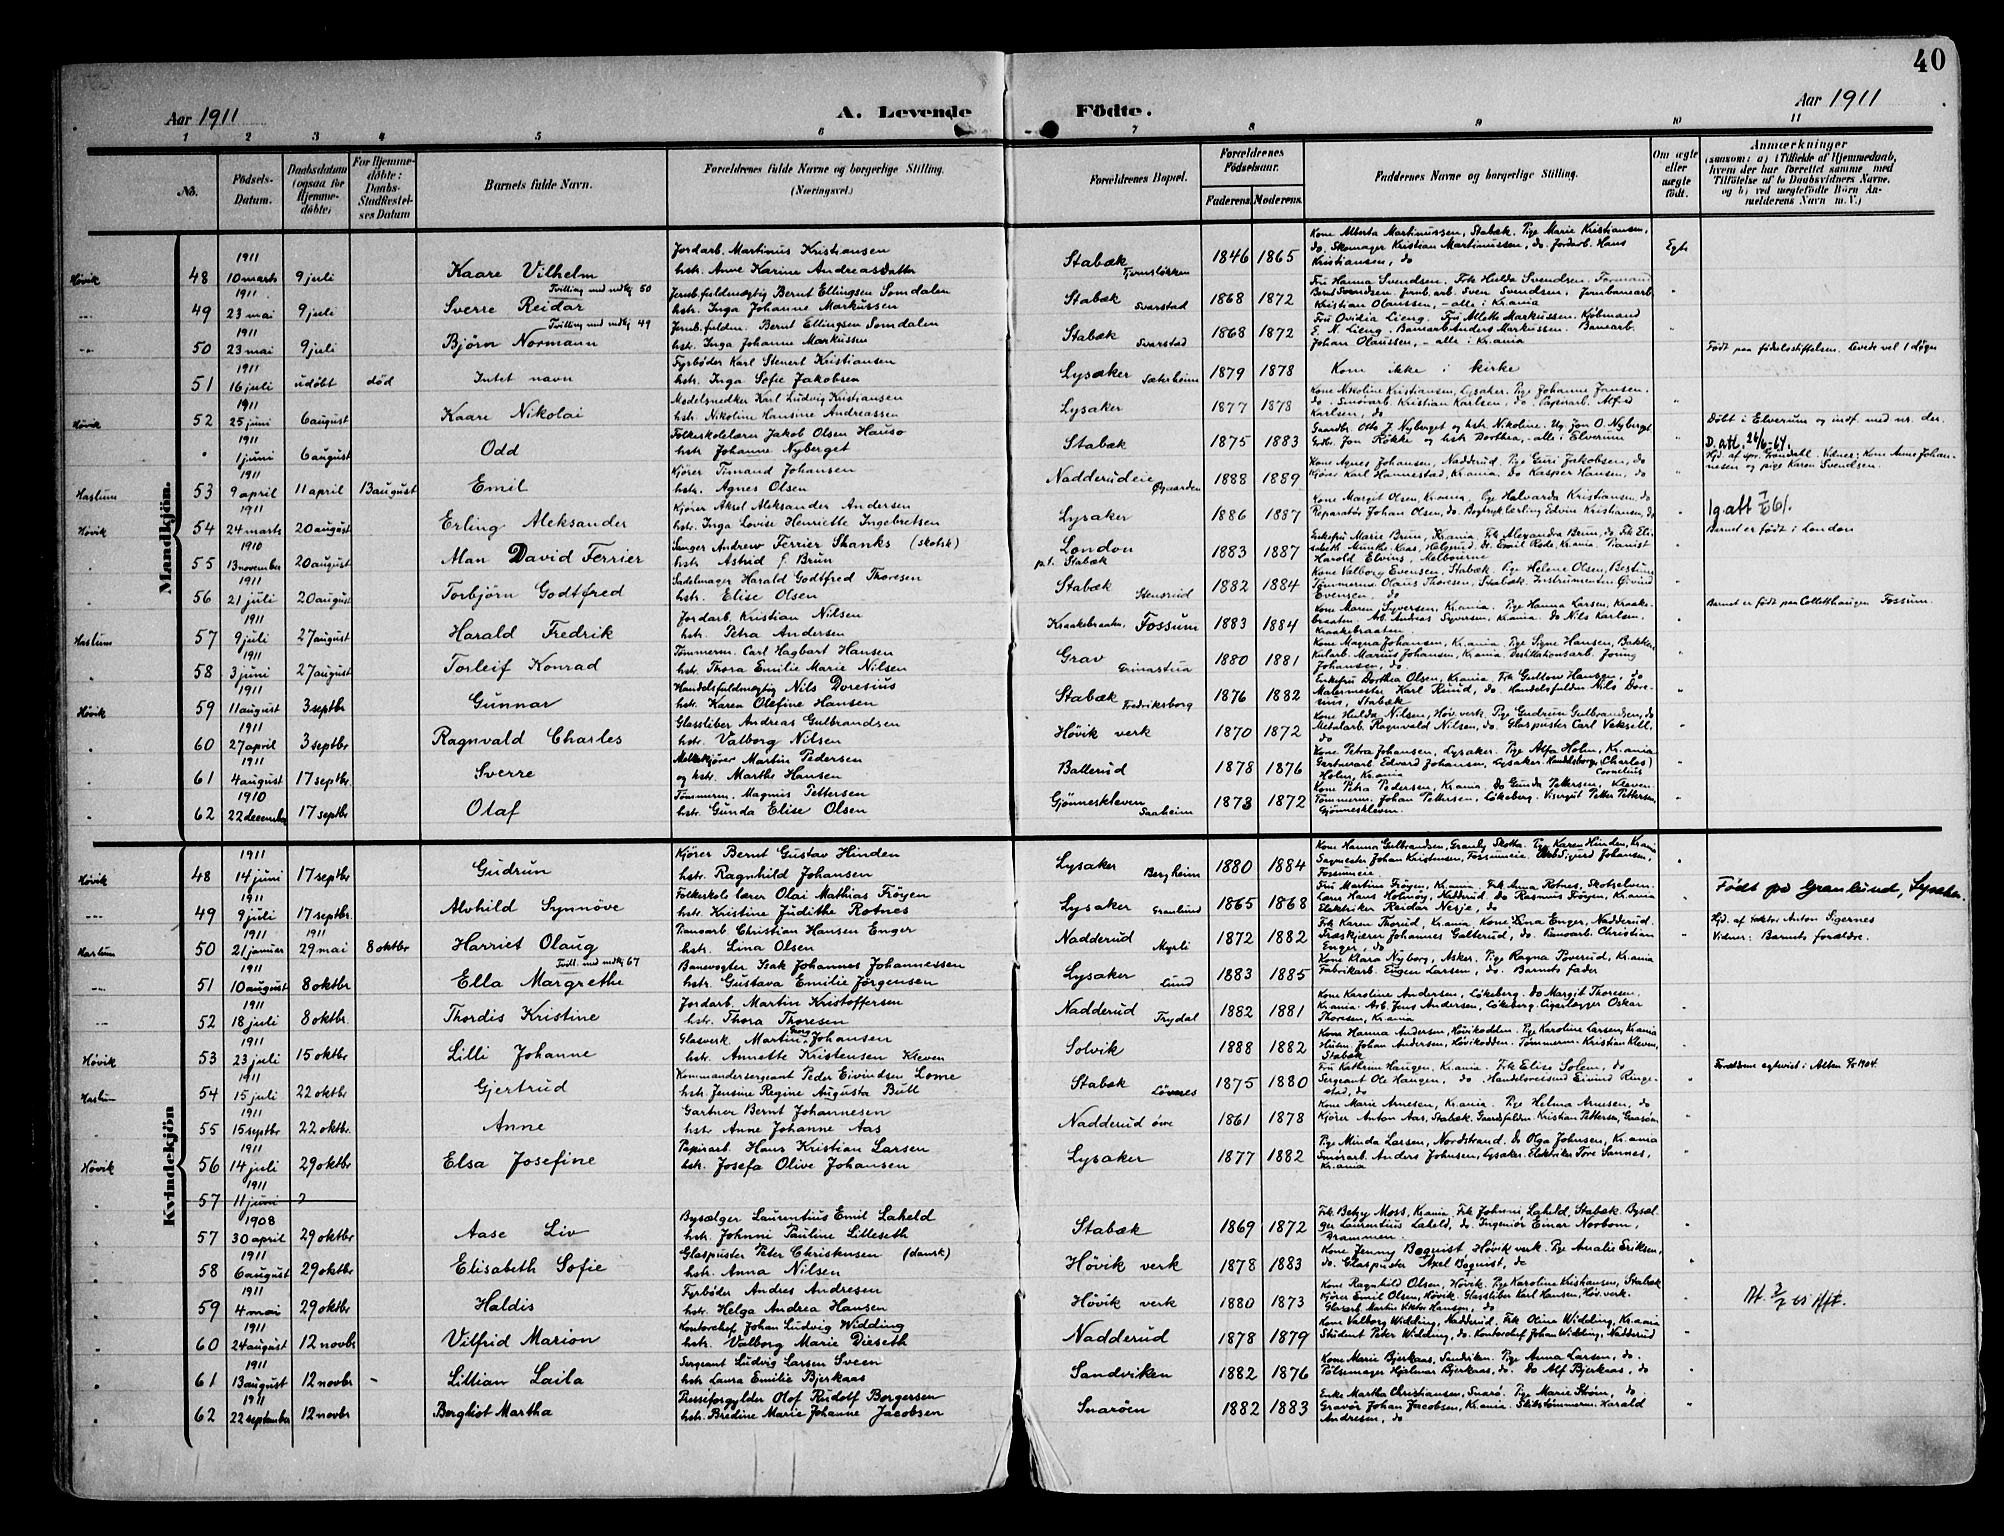 40
Aar 1911
A. Levende
Födte.
Aar 1911
1 2 3 4 5 6 7 8 9 10 11
No.
Födsels-Datum.
Daabsdatum (ogsaa for Hjemme-döbte)
For Hjemme-döbte: Daabs-Stadfæstel-ses Datum
Barnets fulde Navn.
Forældrenes fulde Navne og borgerlige Stilling. (Næringsvei.)
Forældrenes Bopæl.
Forældrenes Födselsaar.
Faderens. Moderens.
Faddernes Navne og borgerlige Stilling.
Om ægte eller uægte födt.
Anmærkninger
Mandkjön.
Høvik 48 1911 10 marts 9 juli Kaare Vilhelm Jordarb. Martinus Kristiansen hstr. Anne Karine Andreasdatter Stabæk 1846 1865 Kone Alberta Martinussen, Stabæk. Pige Marie Kristiansen, do. Skomager Kristian Martinussen, do. Jordarb. Hans Kristiansen, do Egte
49 1911 23 mai 9 juli Sverre Reidar Tvilling med mdkj 50 Jernb.fuldmægtig Bernt Ellingsen Somdalen hstr. Inga Johanne Markussen Stabæk Svarstad 1868 1872 Fru Hanna Svendsen. Frk Hulda Svendsen. Formand Bernt Svendsen. Jernb.arb. Sven Svendsen. Jernbanearb. Kristian Olaussen, - alle i Kr.ania
50 1911 23 mai 9 juli Björn Normann Tvilling med mdkj 49 Jernb.fuldm. Bernt Ellingsen Somdalen hstr. Inga Johanne Markussen Stabæk Svarstad 1868 1872 Fru Ovidia Lieng. Fru Alette Markussen. Kjøbmand E. N. Lieng. Banearb Anders Markussen. Banearb. Johan Olaussen, - alle i Kr.ania
51 1911 16 juli udöbt död Intet navn Fyrböder Karl Stenert Kristiansen hstr. Inga Sofie Jakobsen Lysaker Sæterheim 1879 1878 Kom ikke i kirke Født paa fødselsstiftelsen. Levede vel 1 døgn
Høvik 52 1911 25 juni 6 august Kaare Nikolai Modelsnedker Karl Ludvig Kristiansen hstr. Nikoline Hansine Andreassen Lysaker 1877 1878 Kone Nikoline Kristiansen, Lysaker. Pige Johanne Jansen. do. Smørarb. Kristian Karlsen, do. Papirarb. Alfred Karlsen, do
1911 1 juni 6 august Odd Folkeskolelærer Jakob Olsen Hauso hstr. Johanne Nyberget Stabæk 1875 1883 Gaardbr. Otto J. Nyberget og hstr. Nikoline. Ug. Jon O. Nyberget Gdbr. Jon Røkke og hstr Dorthea, - alle i Elverum Døbt i Elverum og indf. med nr. der. D. att. 26/6-64.
Haslum 53 1911 9 april 11 april 13 august Emil Kjører Timand Johansen hstr. Agnes Olsen Nadderudeie Øgaarden 1888 1889 Kone Agnes Johansen, Nadderud. Pige Guri Jakobsen, do Kjører Karl Hannestad, Kr.ania. do Kaspier Hansen, do Hjd. af spr. Grøndahl. Vidner: Kone Anne Johannesen og pige Karen Svendsen.
Høvik 54 1911 24 marts 20 august Erling Aleksander Kjører Aksel Aleksander Andersen hstr. Inga Lovise Henriette Ingebretsen Lysaker 1886 1887 Kone Margit Olsen, Kr.ania. Pige Halvarda Kristiansen, do Reparatør Johan Olsen, do. Bogtryklærling Elvin Kristiansen, do
55 1910 13 november 20 august Alan David Ferrier Sanger Andrew Ferrier Shanks (skotsk) hstr. Astrid f. Brun London p.t. Stabæk 1883 1887 Enkefru Marie Brun, Kr.ania. Frk Alexandra Brun, do. Frk Elisabeth Münthe-Kaas, Helgerud. Dr. Emil Rode, Kr.ania. Pianist Harold Elvins, Melbourne Barnet er født i London
56 1911 21 juli 20 august Torbjörn Godtfred Sadelmager Harald Godtfred Thoresen hstr. Elise Olsen Stabæk Stensrud 1882 1884 Kone Valborg Evensen, Stabæk. Pige Helene Olsen, Bestum Tømmermd Olaus Thoresen, Stabæk. Instrumentm Øivind Evensen, do
Haslum 57 1911 9 juli 27 august Harald Fredrik Jordarb. Kristian Nilsen hstr. Petra Andersen Kraakebraaten. Fossum 1883 1884 Kone Maren Syversen, Kr.ania. Pige Hanna Larsen, Kraakebraaten. Arb. Andreas Syversen, Kr.ania. do Nils Karlsen. Kraakebraaten Barnet er født paa Colletthaugen Fossum.
58 1911 3 juni 27 august Torleif Konrad Tømmerm. Carl Hagbart Hansen hstr. Thora Emilie Marie Nilsen Grav Grinastua 1880 1881 Kone Magna Johansen, Kr.ania. Pige Signe Hansen, Bakken Kularb. Marius Johansen, Kr.ania. Destillationsarb. Johansen, do
Høvik 59 1911 11 august 3 septbr Gunnar Handelsfuldmægtig Nils Doresius hstr. Karen Olefine Hansen Stabæk Fredriksborg 1876 1882 Enkefru Dorthea Olsen, Kr.ania. Frk Gullow Hansen, do Malermester Karl Ruud, do. Handelsfuldm Nils Doresius, Stabæk
60 1911 27 april 3 septbr Ragnvald Charles Glassliber Andreas Gulbrandsen hstr. Valborg Nilsen Høvik verk 1870 1872 Kone Hulda Nilsen, Høv. verk. Pige Gudrun Gulbrandsen, do Metalarb. Ragnvald Nilsen, do. Glaspuster Carl Veksell, do
61 1911 4 august 17 septbr Sverre Melkekjører Martin Pedersen og hstr. Marthe Hansen Ballerud 1878 1876 Kone Petra Johansen, Lysaker. Pige Alfa Holm, Kr.ania Gartnerarb. Edvard Johansen, Lysaker. Handelsborger (Charles) Cornelius Holm, Kr.ania
62 1910 22 december 17 septbr Olaf Tømmerm. Magnus Pettersen hstr. Gunda Elise Olsen Gjønneskleven Saaheim 1873 1872 Kone Petra Pedersen, Kr.ania. do Gunda Pettersen, Kleven. Tømmerm. Johan Pettersen, Løkeberg. Visergut Petter Pettersen, Gjønneskleven
Kvindekjön
Høvik 48 1911 14 juni 17 septbr Gudrun Kjører Bernt Gustav Hinden hstr. Ragnhild Johansen Lysaker Bergheim 1880 1884 Kone Hanna Gulbrandsen, Granly Skotta. Pige Karen Hinden, Kr.ania Sagmester Johan Kristensen, Fossumeie. Sigurd Johansen, Fossumeie
49 1911 9 juli 17 septbr. Alvhild Synnöve Folkeskolelærer Olai Mathias Tröyen hstr. Kristine Judithe Rotnes Lysaker Granlund 1865 1868 Fru Martine Tröyen, Kr.ania. Frk. Anna Rotnes, Skotselven. Lars Hans Holmöy, Nadderud. do Rasmus Tröyen, Kr.ania Elektriker Reidar Nesje, do Født på Granlund, Lysaker.
Haslum 50 1911 21 januar 1911 29 mai 8 oktbr Harriet Olaug Pianoarb Christian Hansen Enger hstr. Lina Olsen Nadderud Myrli 1872 1882 Frk. Karen Thorud, Kr.ania. Kone Lina Enger, Nadderud. Træskjærer Johannes Galterud, do. Pianoarb. Christian Enger, do Hjd. af doktor Anton Sigernes Vidner: Barnets forældre.
51 1911 10 august 8 oktbr Ella Margrethe Tvill. med mdkj 67 Banevogter Isak Johannes Johannessen hstr. Gustava Emilie Jørgensen Lysaker Lund 1883 1885 Kone Klara Nyborg, Asker. Pige Ragna Poverud, Kr.ania Fabrikarb. Eugen Larsen, do. Barnets fader
52 1911 18 juli 8 oktbr. Thordis Kristine Jordarb. Martin Kristoffersen hstr. Thora Thoresen Nadderud Trydal 1882 1881 Kone Karoline Andersen, Løkeberg. do Margit Thoresen. Kr.ania. Arb. Jens Andersen, Løkeberg. Cigarlægger Oskar Thoresen, Kr.ania
Høvik 53 1911 23 juli 15 oktbr Lilli Johanne Glasverk. Martin Johansen hstr. Annette Kristensen Kleven Solvik 1888 1882 Kone Hanna Andersen, Høvikodden. Pige Karoline Larsen, Kr.ania Husm. Johan Andersen, Høvikodden. Tømmerm. Kristian Kleven, Stabæk
Haslum 54 1911 15 juli 22 oktbr Gjertrud Kommandersergeant Peder Eivindsen Lome hstr. Jensine Regine Augusta Bull Stabæk Lövenes 1875 1880 Fru Kathrine Haugen, Kr.ania. Frk Elise Solem, do Sergeant Ole Haugen, do. Handelsreisend Eivind Ringestad, do Forældrene egteviet i Alten 1904.
55 1911 15 septbr 22 oktbr. Anne Gartner Bernt Johannesen hstr. Anne Johanne Aas Nadderud øvre 1861 1878 Kone Marie Arnesen, Kr.ania. Pige Helma Arnesen, do Kjører Anton Aas, Stabæk. Gaardsfuldm. Kristian Pettersen,
Høvik 56 1911 14 juli 29 oktbr Elsa Josefine Papirarb. Hans Kristian Larsen hstr. Josefa Olive Johansen Lysaker 1877 1882 Pige Minda Larsen, Nordstrand. do Olga Johnsen, Kr.ania Smörarb. Anders Johnsen, Lysaker. Elektriker Tore Sannes, Kr.ania
57 1911 11 juni ?
57 1908 30 april 29 oktbr Aase Liv Bysælger Laurentius Emil Lakeld hstr. Johnni Pauline Lilleseth Stabæk 1869 1872 Frk. Betzy Moss, Kr.ania. Frk Johnni Lakeld, Stabæk. Bysælger Laurentius Lakeld, do. Ingeniør Einar Norbom, Drammen.
58 1911 6 august 29 oktbr Elisabeth Sofie Glaspuster Peter Christensen (dansk) hstr. Anna Nilsen Høvik verk 1878 1883 Kone Jenny Boquist, Høvik verk. Pige Amalie Eriksen, do. Glaspuster Axel Boquist, do
59 1911 4 mai 29 oktbr Haldis Fyrböder Andres Andresen hstr. Helga Andrea Hansen Høvik verk 1880 1873 Kone Ragnhild Olsen, Høvik. Pige Karoline Kristiansen, Stabæk Kjører Emil Olsen, Høvik. Glassliber Karl Hansen, Høv. verk. Glasarb. Martin Viktor Hansen, do
60 1911 24 august 12 novbr Vilfrid Marion Kontorchef Johan Ludvig Widding hstr. Valborg Marie Dieseth Nadderud 1878 1879 Kone Valborg Widding, Nadderud. Frk Oline Widding, Kr.ania Student Peter Widding, do. Kontorchef Johan Widding, Nadderud
61 1911 13 august 12 novbr - Lillian Laila Sergeant Ludvig Larsen Sveen hstr Laura Emilie Bjerkaas Sandviken 1882 1876 Kone Marie Bjerkaas, Sandviken. Pige Anna Larsen, do. Pölsemager Hjalmar Bjerkaas, do. do Alf Bjerkaas, do
62 1911 22 september 12 novbr Bergliot Martha Pressforgylder Olof Rudolf Borgersen hstr. Bredine Marie Johanne Jacobsen Snarøen 1882 1883 Enke Martha Christiansen, Snarø. Pige Marie Strøm, do Gravør Johan Jacobsen, Kr.ania. Skibstømmerm. Harald Andresen, do